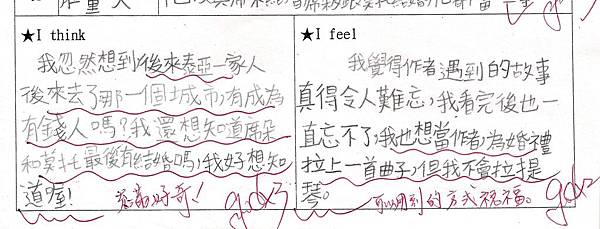 ★I think
我忽然想到後來泰亞一家人
後來去了那一個城市,有成為
有錢人嗎?我還想知道席朵
和莫托最後有結婚嗎,我好想知
道喔!
好奇!
★I feel
我覺得作者遇到的故事
真得令人難忘,我看完後也一
直忘不了,我也想當作者,為婚禮
拉上一首曲子,但我不會拉提
琴。
的方式祝福。